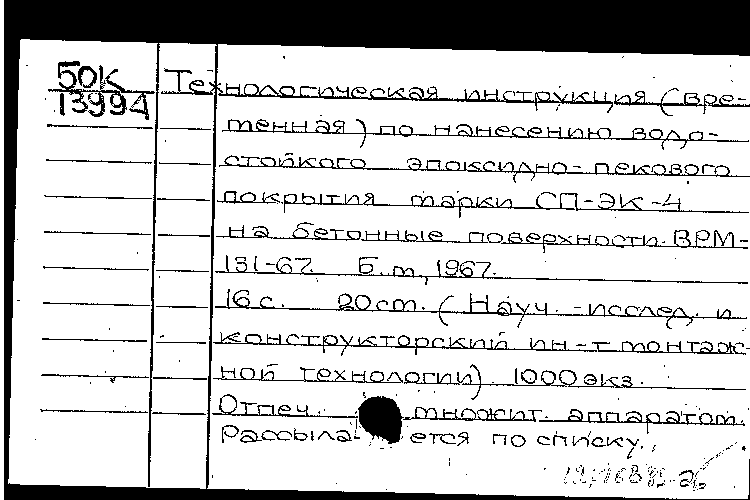 50К
13994
Технологическая инструкция (вре-
менная) по нанесению водо-
стойкого эпоксидно-пекового
покрытия марки СП-ЭК-4
на бетонные поверхности. ВРМ-
131-67. Б.м., 1967.
16 с. 20 см. (Науч.-исслед. и
конструкторский ин-т монтаж-
ной технологии) 1000 экз.
Отпеч. множит. аппаратом.
Рассыла- ется по списку.